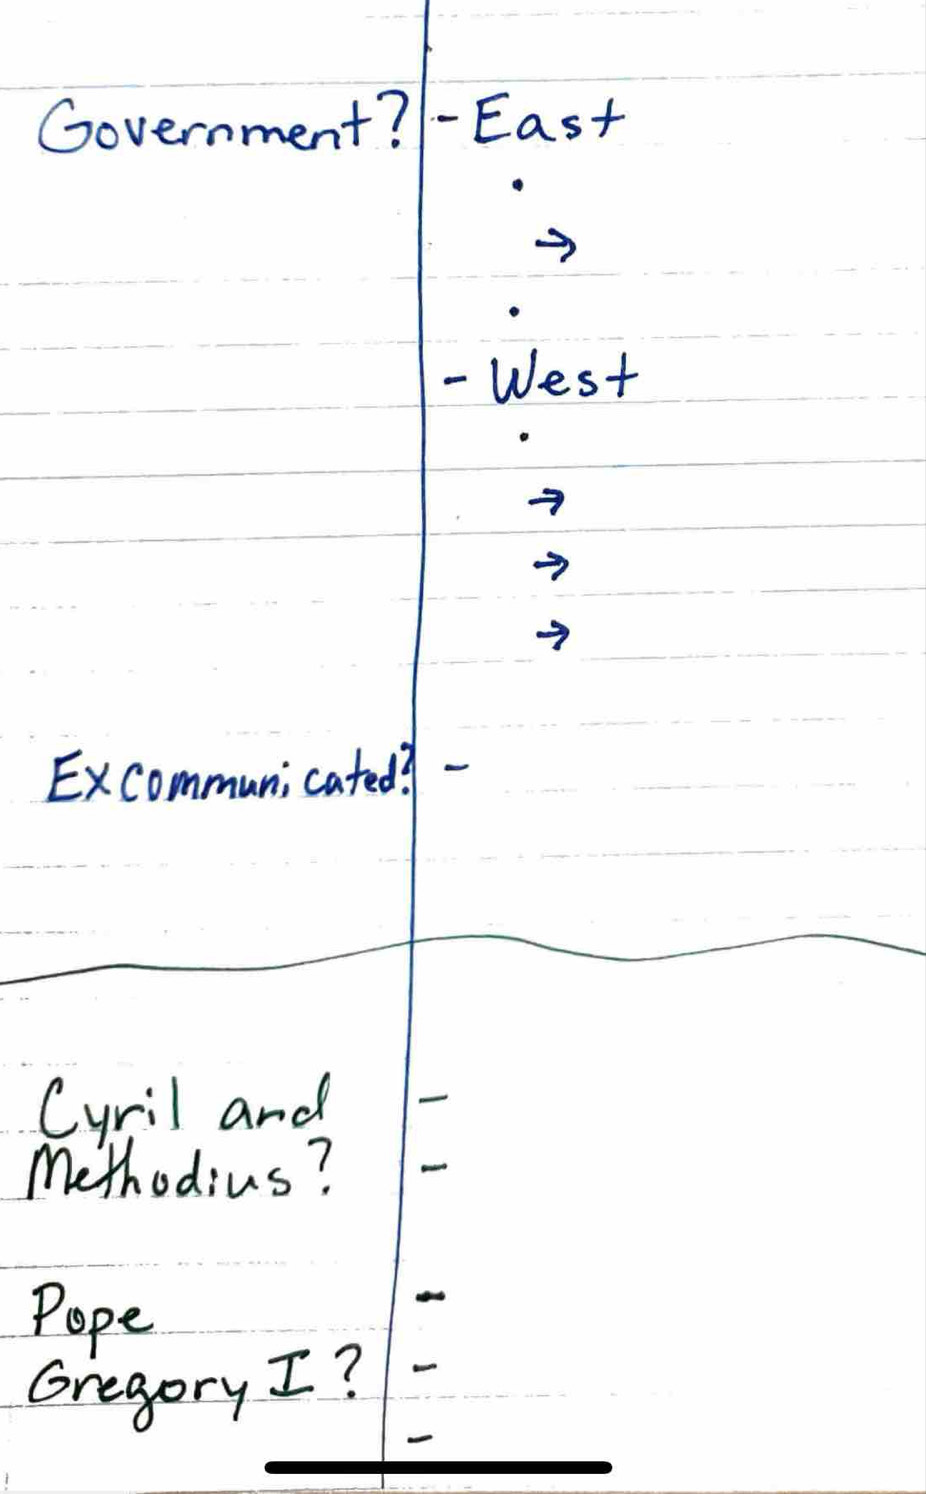 Government? - East
•
→
•
- West
•
→
→
→
Excommunicated? -
Cyril and -
Methodius? -
Pope -
Gregory I? -
-